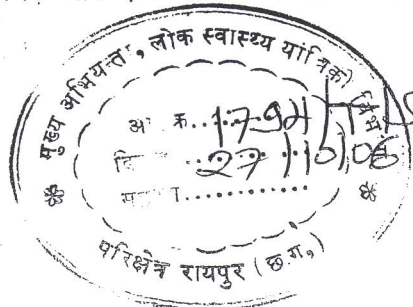 मुख्य अभियन्ता, लोक स्वास्थ्य यांत्रिकी विभाग
क्र.....1794
दि.....27/10/06
परिक्षेत्र रायपुर (छ.ग.)